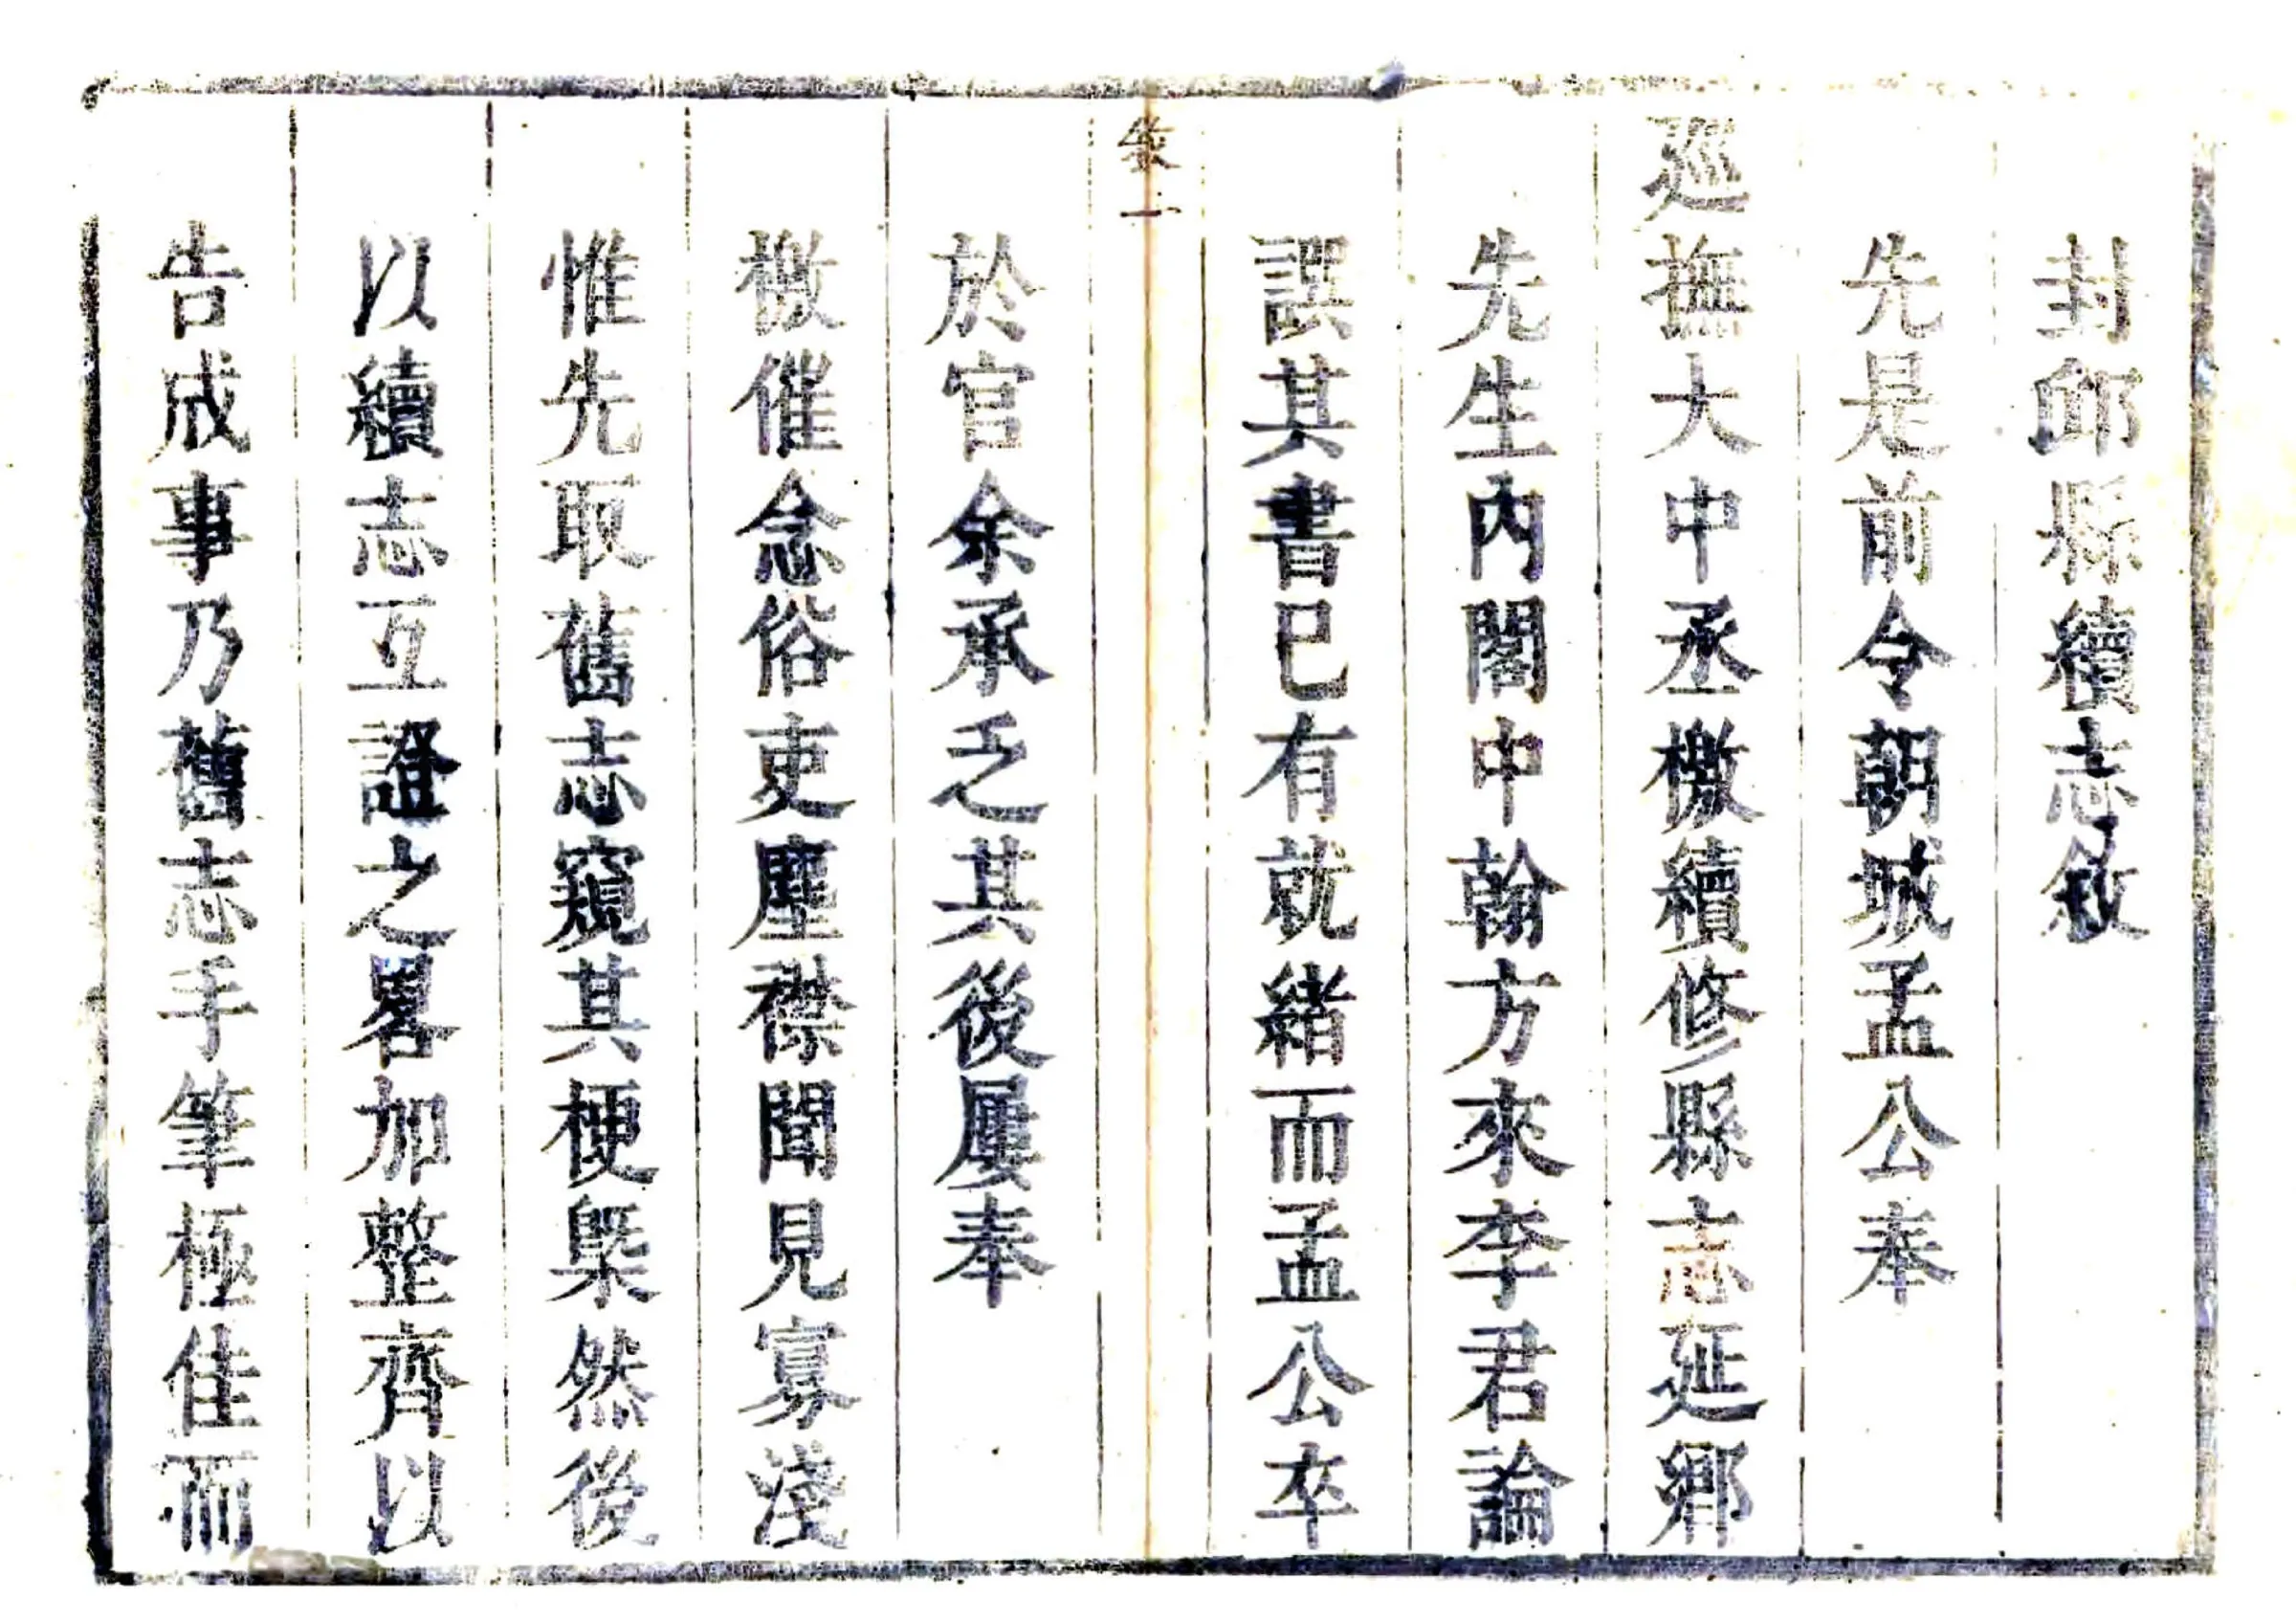 封邱縣續志敘
先是前令朝城孟公奉
廵撫大中丞檄續修縣志延鄉
先生內閣中翰方來李君論
譔其書已有就緒而孟公卒
於官余承乏其後屢奉
檄催念俗吏塵襟聞見寡淺
惟先取舊志窺其梗槩然後
以續志互證之畧加整齊以
告成事乃舊志手筆極佳而